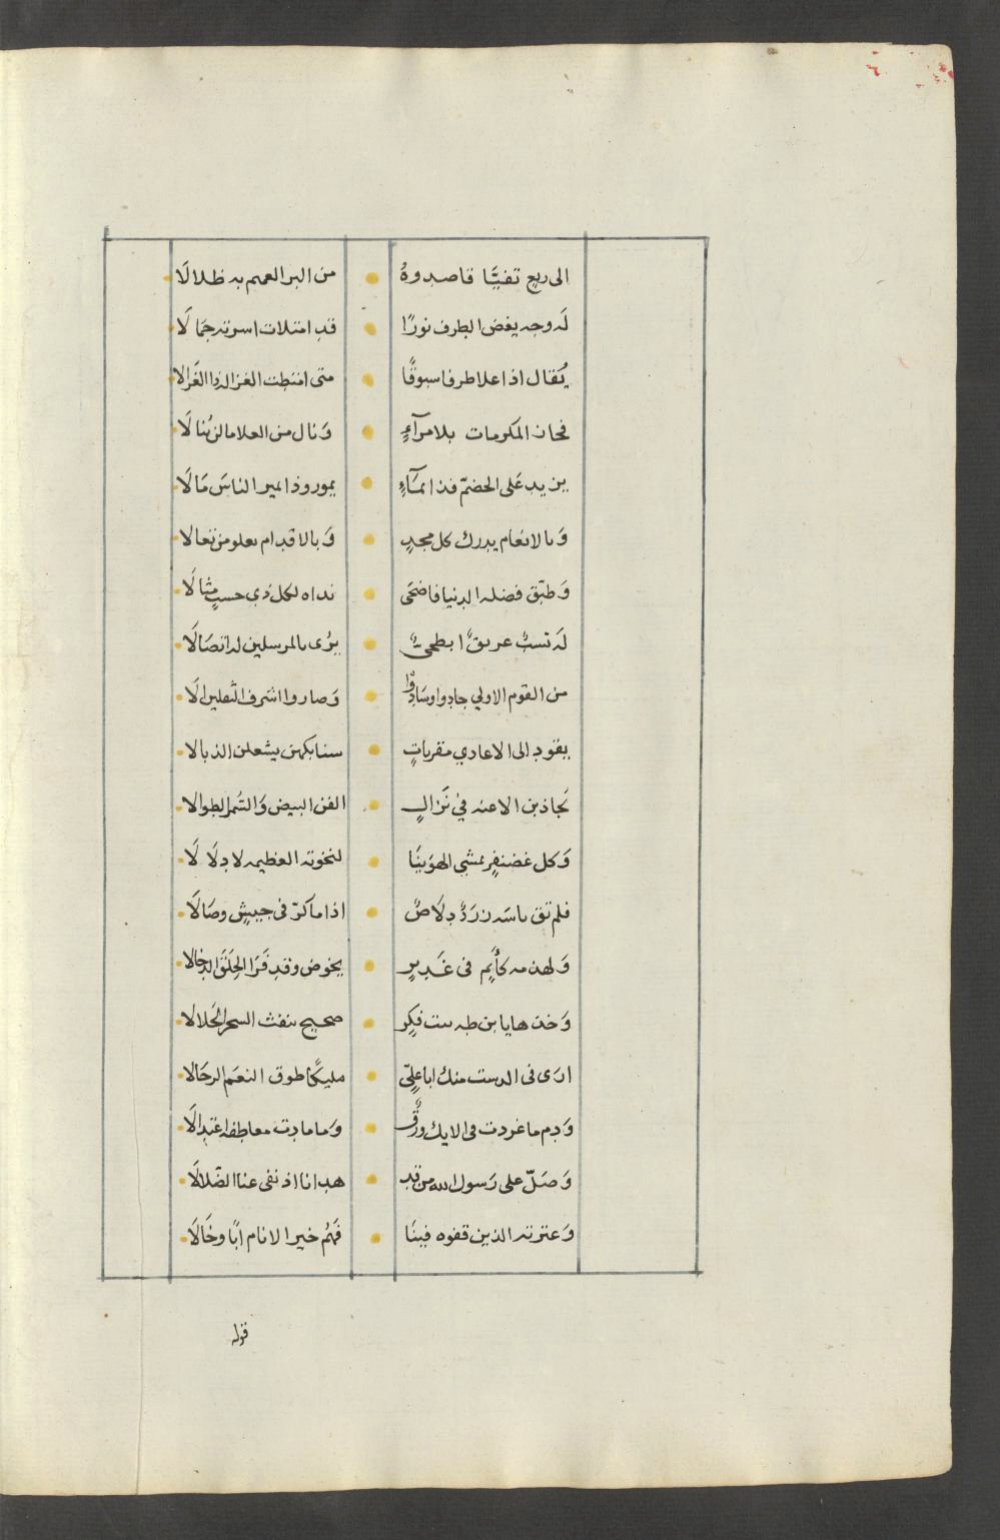 الى ربع تفيّا قاصدوهُ من البر العميم به ظلالَا
لَه وجه يغض الطرف نورًا قد امتلات اسرته جمَالَا
يُقال اذا علا طرفا سبوقًا متى امتطت الغزالة ذا الغَزالا
فحاز المكرمات بلا مرآءٍ وَنال من العلا ما لن يُنالَا
يزيد عَلى الخضمّ فذا بمآءٍ يمور وذا يمير الناسَ مَالَا
وَبالانعام يدرك كل مجدٍ وَبالاقدام يعلو من تعالا
وَطبّق فضله الدنيا فاضحَى نداه لكل ذي حسبٍ مثالَا
لَه نسبٌ عريقٌ ابطحيٌّ يرُى بالمرسلين له اتصَالَا
من القوم الاولي جادوا وسَادُوا وَصاروا اشرف الثقلين الَا
يقود الى الاعادي مقرباتٍ سنابكهن يشعلن الذبالا
تجاذبن الاعنه في نَزالٍ الفن البيض وَالسُّمر الطوالا
وَكل غضنفرٍ يمشي الهوَينَا لنخوته العظيمه لا دلَالَا
فلم تق باسَه زرَدٌ دِلَاصٌ اذا ما كرّ فى جيشٍ وصَالَا
وَلهذمه كأيمٍ فى غَديرٍ يخوض وقد فَرَا الحِلَقَ الدخالا
وَخذها يا ابن طه بنت فِكرٍ صحيح ينفث السحر الحَلالا
ارَى فى الدست منك ابا علِيّ مليكًا طوق النعَم الرجَالا
وَدم ما غردت فى الايك ورْقٌ وَما مادت معاطفه اعتِدالَا
وَصَلّ على رَسول الله من قد هدانا اذ نفى عنا الضّلالَا
وَعترته الذين قفوه فينَا فَهُم خير الانام ابًا وخَالَا
قوله